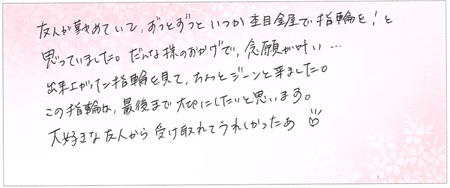 友人が勤めていて、ずっとずっといつか杢目金屋で指輪を!と
思っていました。だんな様のおかげで、念願が叶い…
出来上がった指輪を見て、ちょっとジーンと来ました。
この指輪は、最後まで大切にしたいと思います。
大好きな友人から受け取れてうれしかったあ